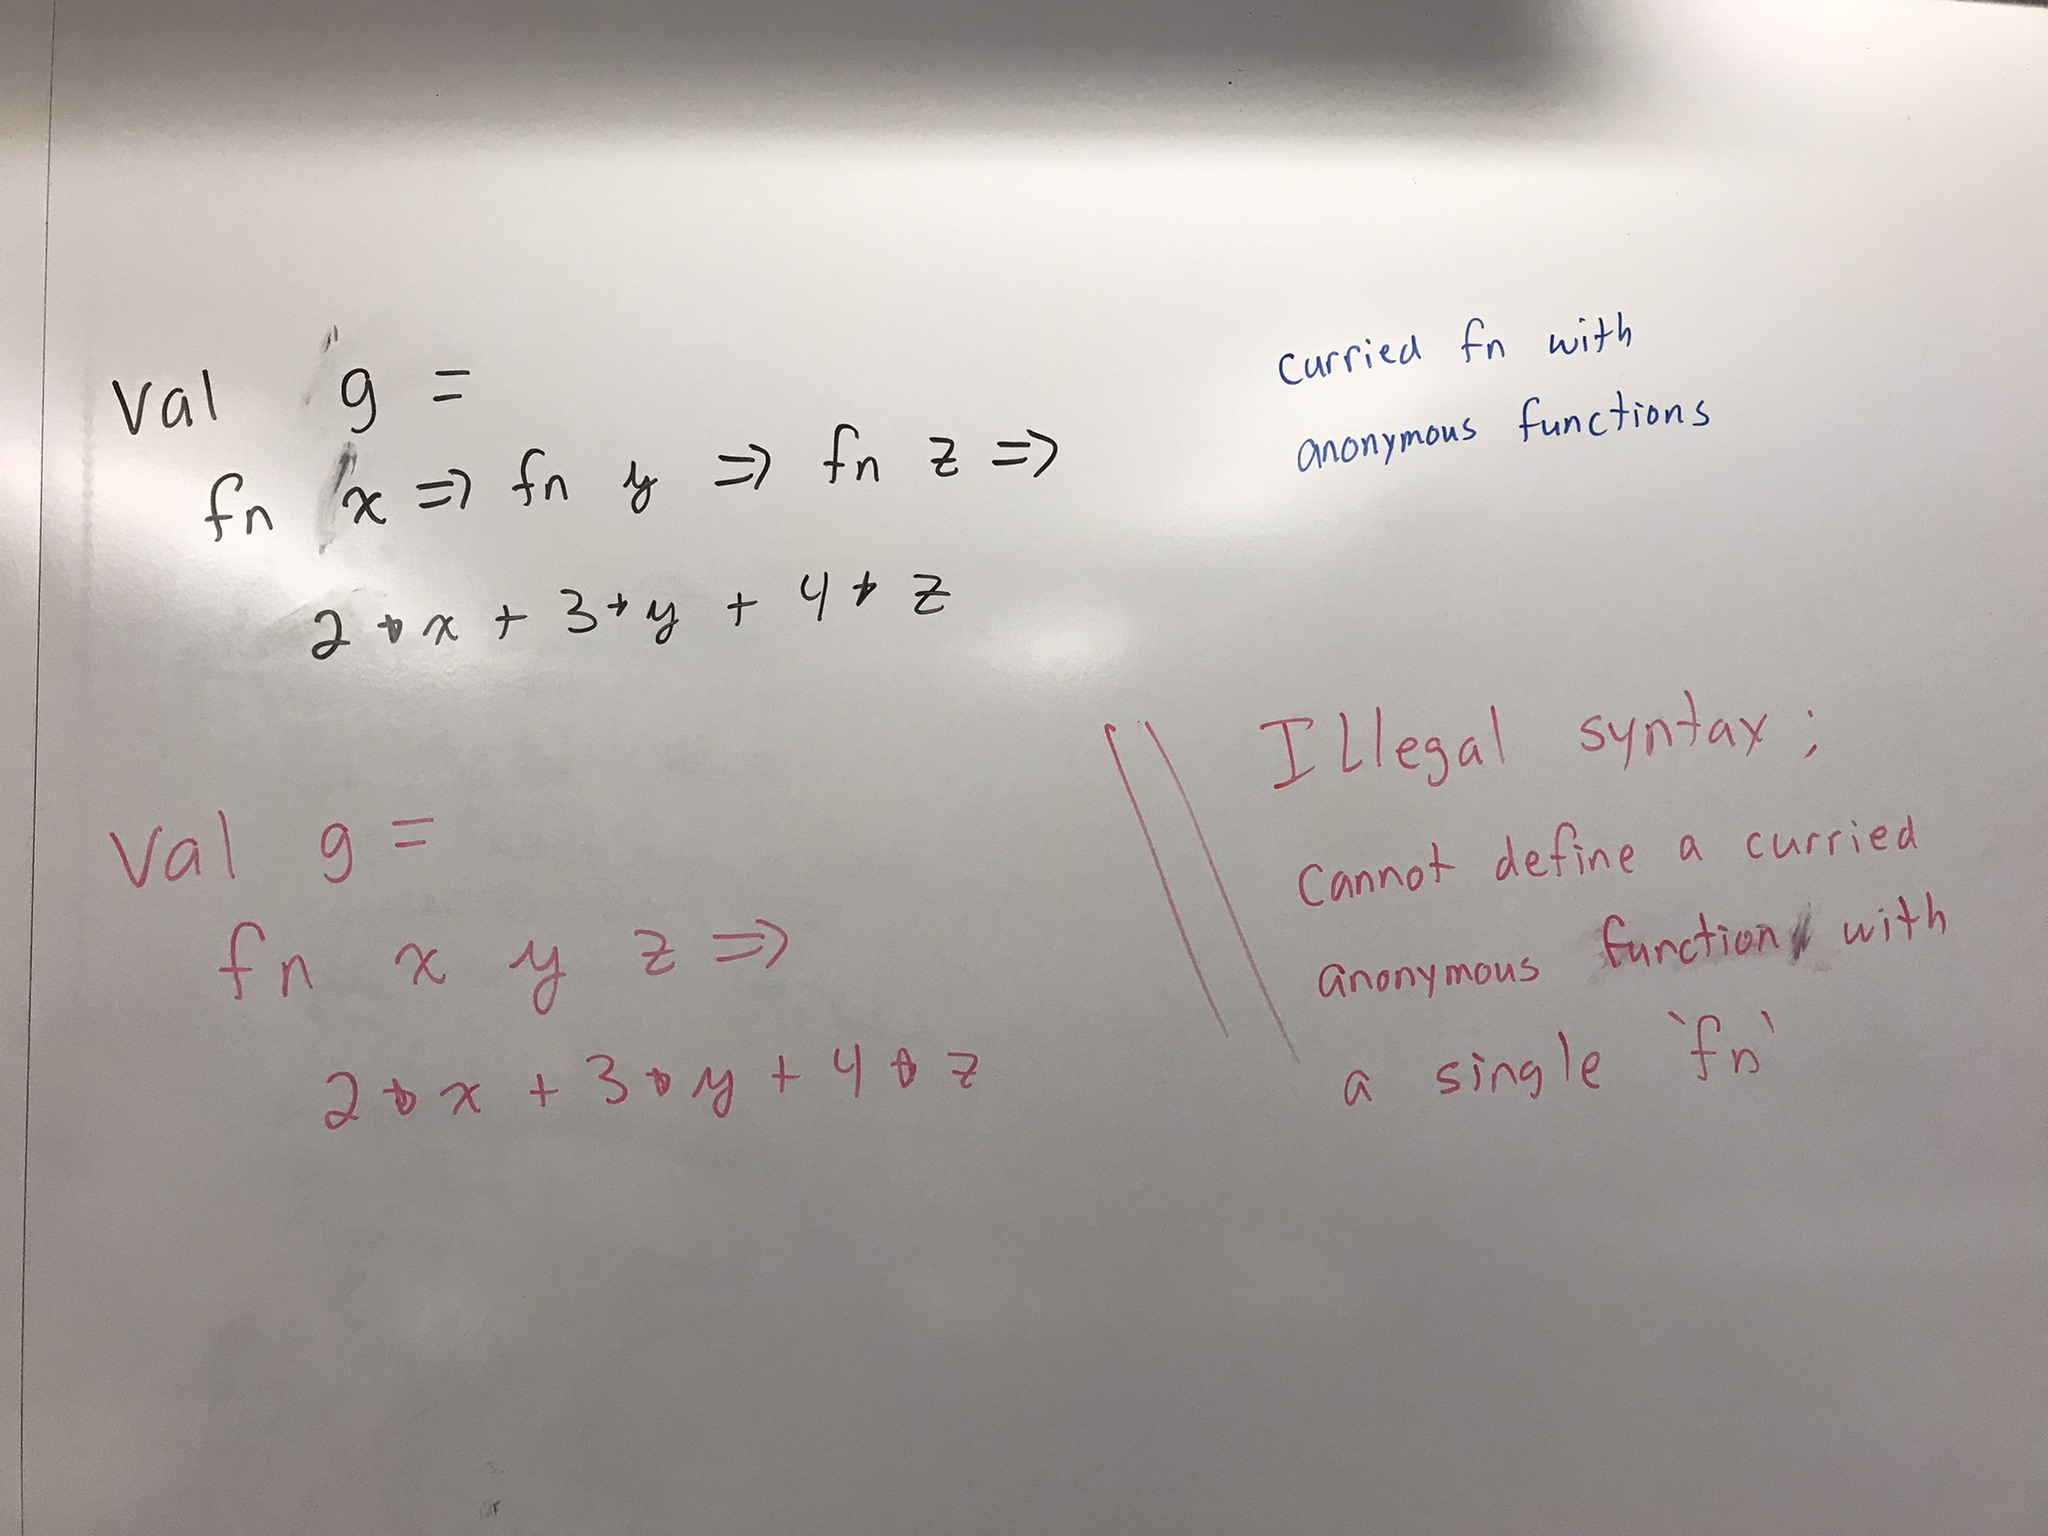 Val g =
fn x => fn y => fn z =>
2 * x + 3 * y + 4 * z
curried fn with
anonymous functions
Val g =
fn x y z =>
2 * x + 3 * y + 4 * z
// Illegal syntax;
Cannot define a curried
anonymous function with
a single `fn`